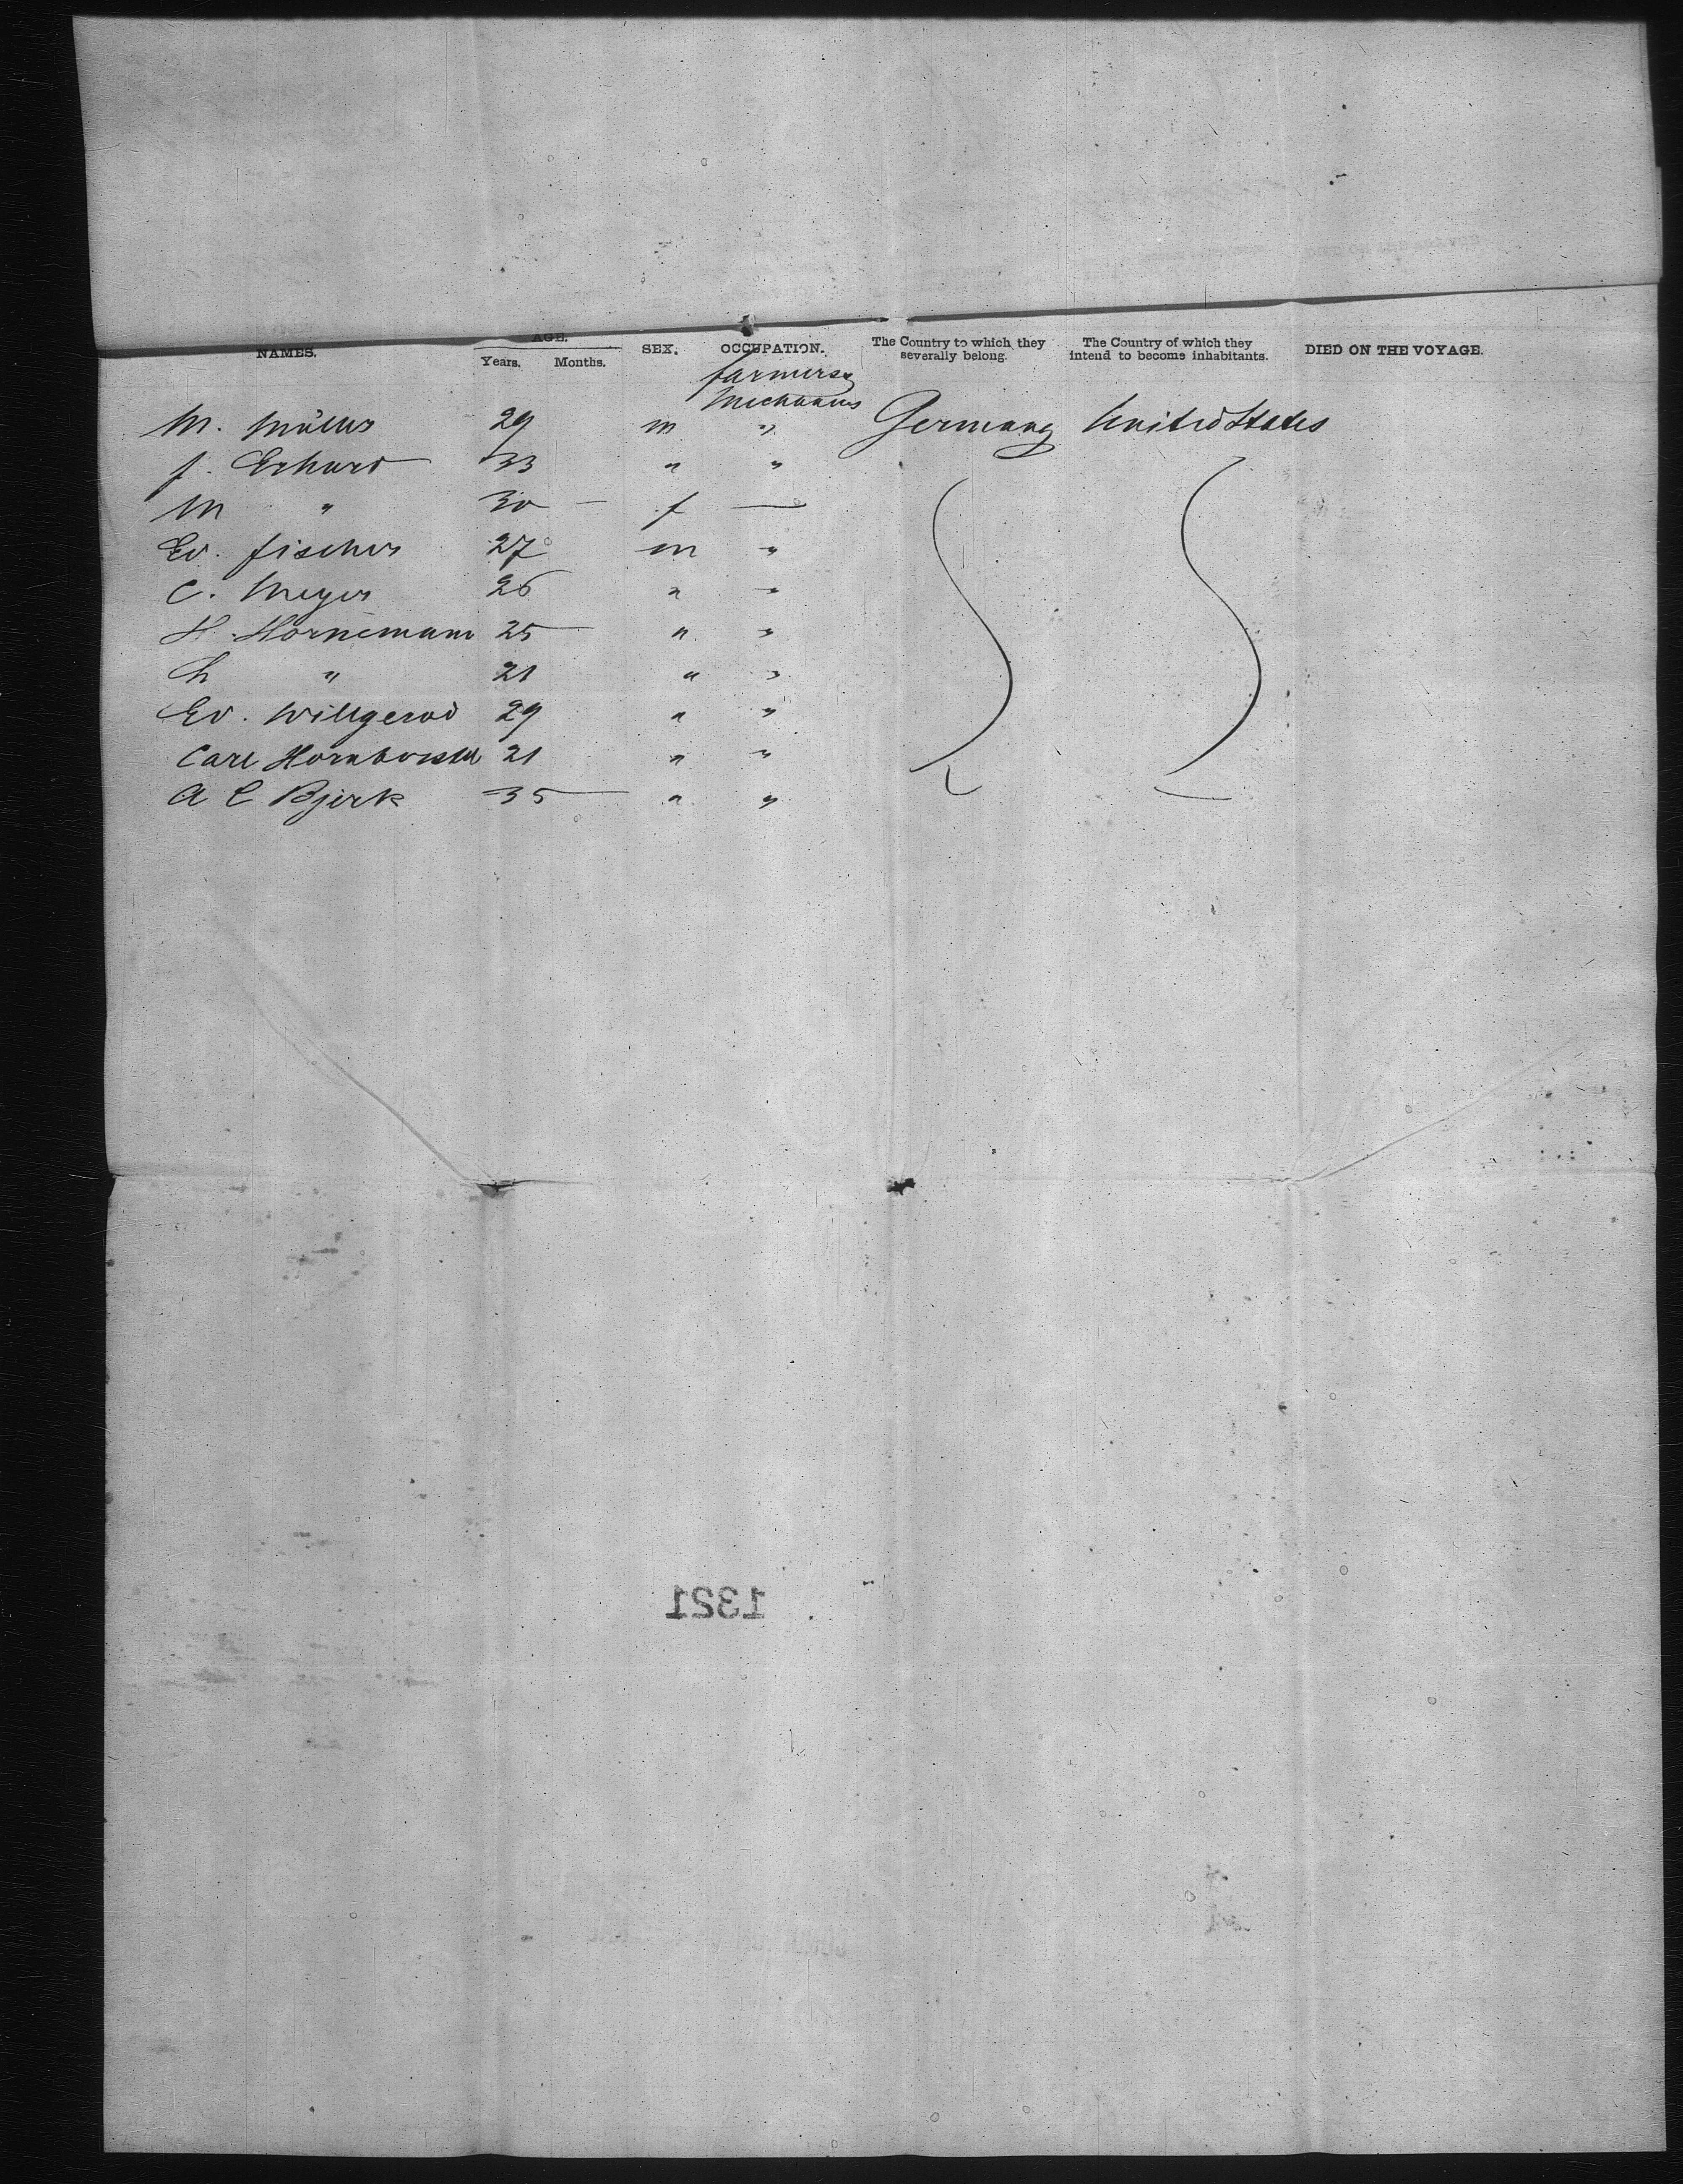 NAMES. AGE. Years. Months. SEX. OCCUPATION. The Country to which they severally belong. The Country of which they intend to become inhabitants. DIED ON THE VOYAGE.
farmers &
Mechanics
M. Müller 29 m " Germany United States
f. Erhard 33 " "
M " 30 — f —
Ed. fischer 27 m "
C. Meyer 26 " "
H. Hornemann 25 " "
" 21 " "
Ed. Willgerod 29 " "
Carl Hornbostel 21 " "
A C Bjerk 35 " "
1321